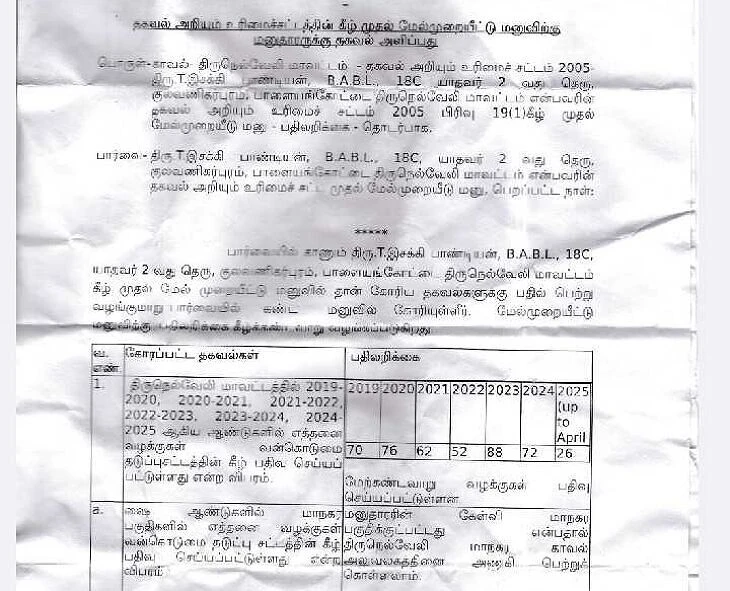 தகவல் அறியும் உரிமைச்சட்டத்தின் கீழ் முதல் மேல்முறையீட்டு மனுவிற்கு
மனுதாரருக்கு தகவல் அளிப்பது
பொருள்-காவல்- திருநெல்வேலி மாவட்டம் - தகவல் அறியும் உரிமைச் சட்டம் 2005-
திரு.T.இசக்கி பாண்டியன், B.A.B.L., 18C யாதவர் 2 வது தெரு,
குலவணிகர்புரம், பாளையங்கோட்டை திருநெல்வேலி மாவட்டம் என்பவரின்
தகவல் அறியும் உரிமைச் சட்டம் 2005 பிரிவு 19(1)கீழ் முதல்
மேல்முறையீடு மனு - பதிலறிக்கை - தொடர்பாக.
பார்வை:- திரு.T.இசக்கி பாண்டியன், B.A.B.L., 18C, யாதவர் 2 வது தெரு,
குலவணிகர்புரம், பாளையங்கோட்டை திருநெல்வேலி மாவட்டம் என்பவரின்
தகவல் அறியும் உரிமைச் சட்ட முதல் மேல்முறையீடு மனு, பெறப்பட்ட நாள்:
*****
பார்வையில் காணும் திரு.T.இசக்கி பாண்டியன், B.A.B.L., 18C,
யாதவர் 2 வது தெரு, குலவணிகர்புரம், பாளையங்கோட்டை திருநெல்வேலி மாவட்டம்
கீழ் முதல் மேல் முறையீட்டு மனுவில் தான் கோரிய தகவல்களுக்கு பதில் பெற்று
வழங்குமாறு பார்வையில் கண்ட மனுவில் கோரியுள்ளீர். மேல்முறையீட்டு
மனுவிற்கு பதிலறிக்கை கீழ்க்கண்டவாறு வழங்கப்படுகிறது
வ. எண். கோரப்பட்ட தகவல்கள் பதிலறிக்கை
1. திருநெல்வேலி மாவட்டத்தில் 2019-
2020, 2020-2021, 2021-2022,
2022-2023, 2023-2024, 2024-
2025 ஆகிய ஆண்டுகளில் எத்தனை
வழக்குகள் வன்கொடுமை
தடுப்புசட்டத்தின் கீழ் பதிவு செய்யப்
பட்டுள்ளது என்ற விபரம்.
2019 2020 2021 2022 2023 2024 2025
(up
to
April
70 76 62 52 88 72 26
மேற்கண்டவாறு வழக்குகள் பதிவு
செய்யப்பட்டுள்ளன
a. ஷை ஆண்டுகளில் மாநகர
பகுதிகளில் எத்தனை வழக்குகள்
வன்கொடுமை தடுப்பு சட்டத்தின் கீழ்
பதிவு செய்யப்பட்டுள்ளது என்ற
விபரம்
மனுதாரரின் கேள்வி மாநகர
பகுதிக்குட்பட்டது என்பதால்
திருநெல்வேலி மாநகர காவல்
அலுவலகத்தினை அணுகி பெற்றுக்
கொள்ளலாம்.